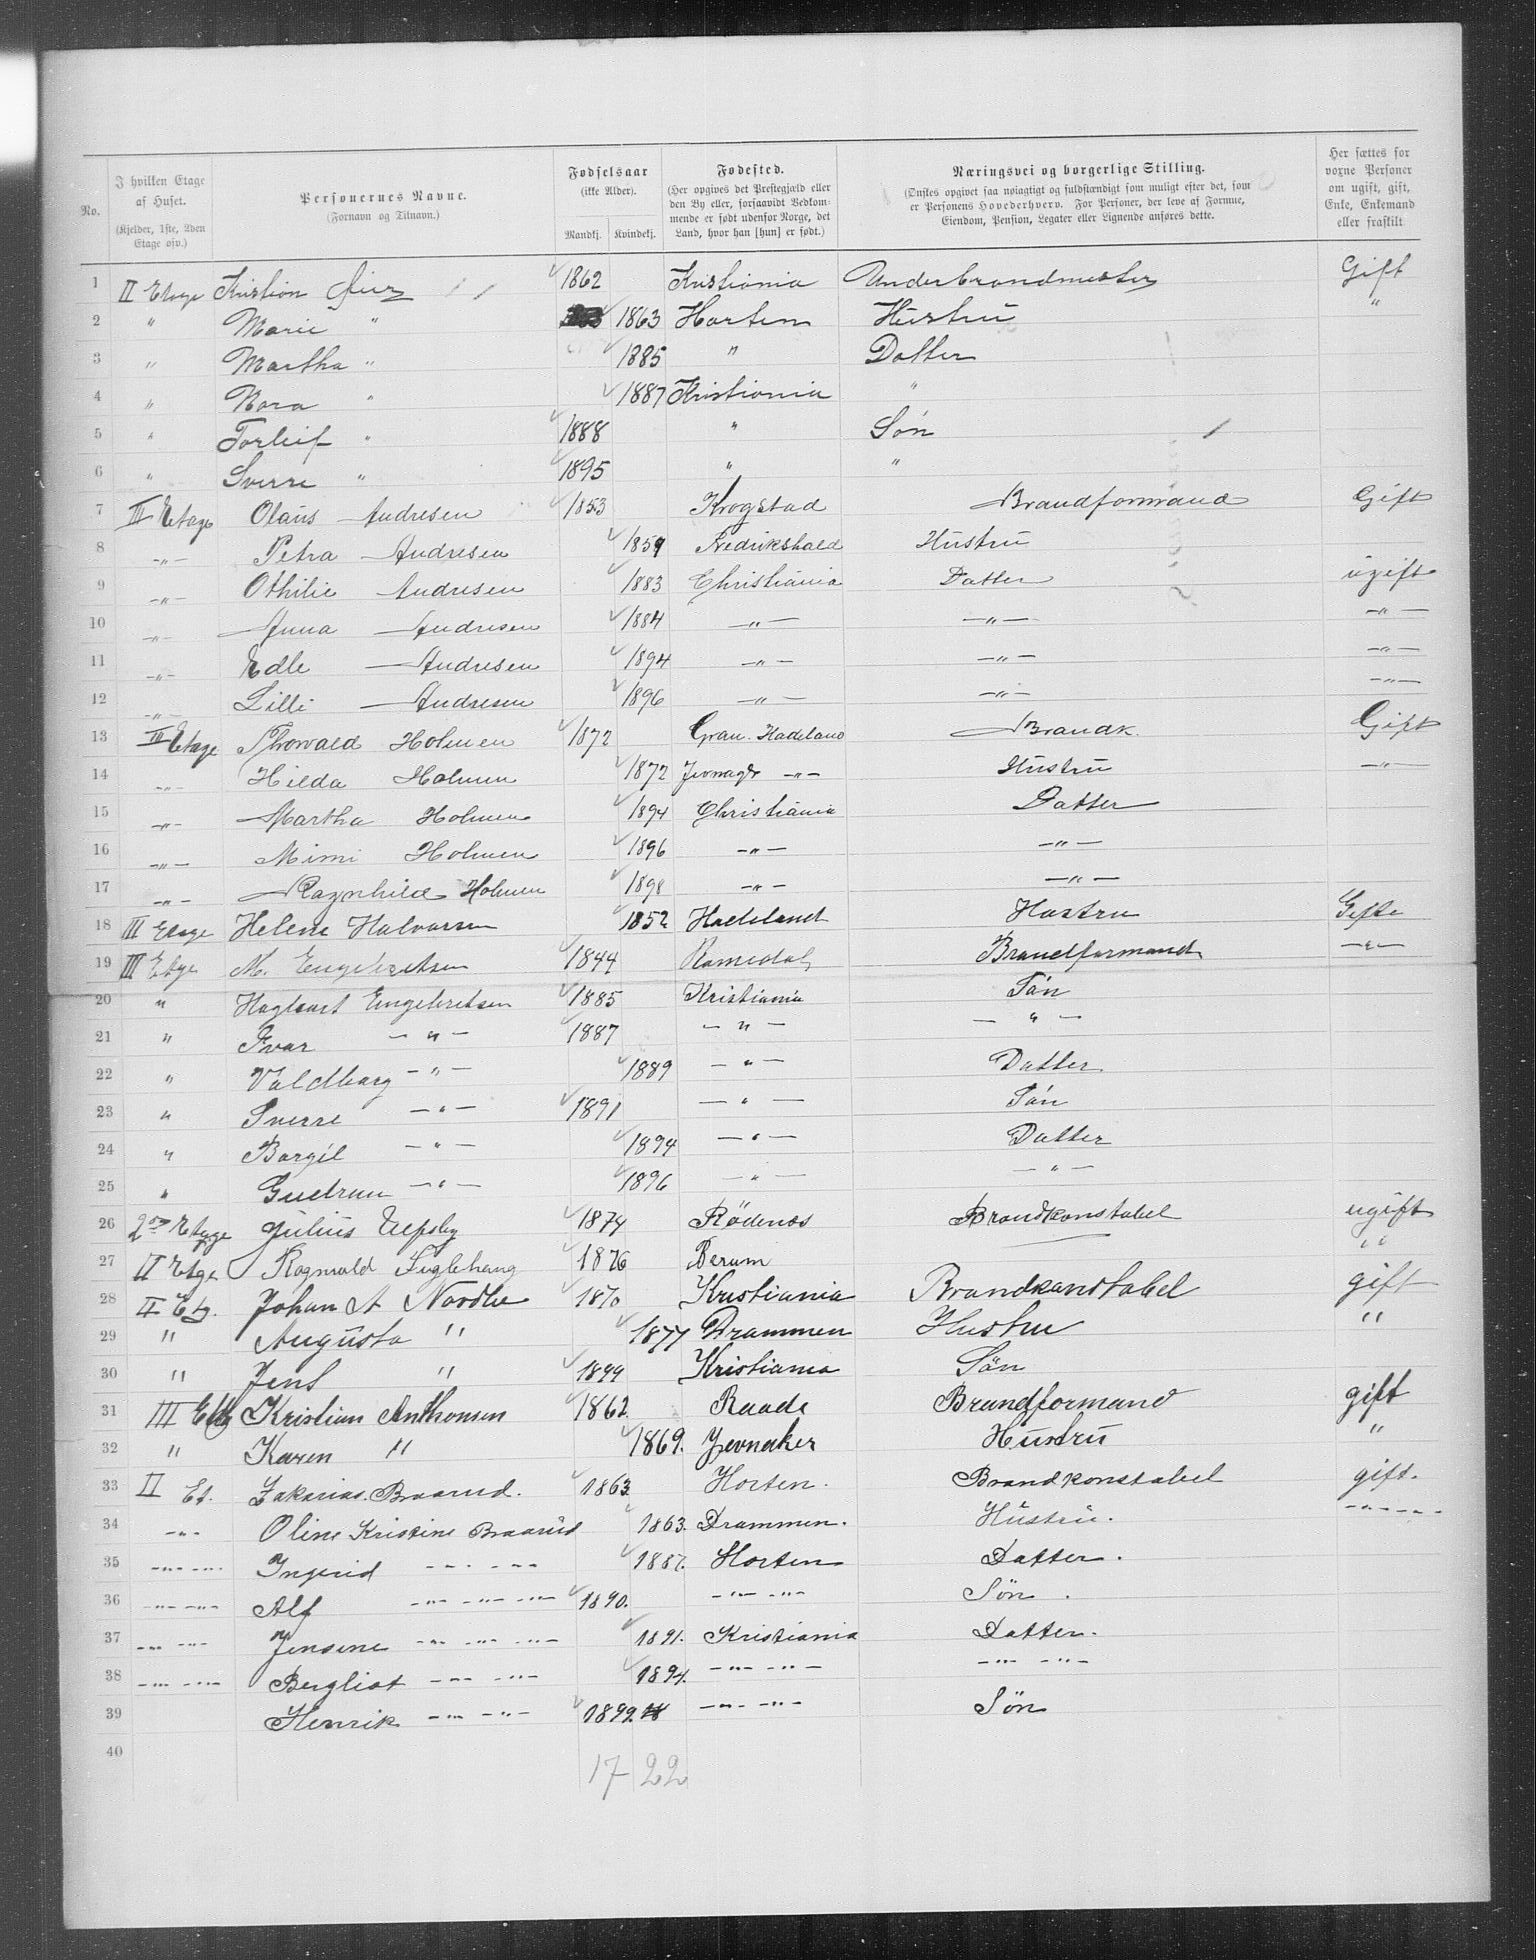 No. | I hvilken Etage af Huset. (Kjelder, 1ste, 2den Etage osv.) | Personernes Navne. (Fornavn og Tilnavn.) | Fødselsaar (ikke Alder). Mandkj. Kvindekj. | Fødested. (Her opgives det Prestegjæld eller den By eller, forsaavidt Vedkommende er født udenfor Norge, det Land, hvor han [hun] er født.) | Næringsvei og borgerlige Stilling. (Ønskes opgivet saa nøiagtigt og fuldstændigt som muligt efter det, som er Personens Hovederhverv. For Personer, der leve af Formue, Eiendom, Pension, Legater eller Lignende anføres dette. | Her sættes for voxne Personer om ugift, gift, Enke, Enkemand eller fraskilt
1 II Etage Kristian 1862 Kristiania Underbrandmester Gift
2 " Marie " 1863 Horten Hustru "
3 " Martha " 1885 " Datter
4 " Nora " 1887 Kristiania "
5 " Torleif " 1888 " Søn
6 " Sverre " 1895 " "
7 III Etage Olaus Andresen 1853 Krogstad Brandformand Gift
8 -"- Petra Andresen 1859 Fredrikshald Hustru
9 -"- Othilie Andresen 1883 Christiania Datter ugift
10 -"- Anna Andresen 1884 -"- -"- -"-
11 -"- Edle Andresen 1894 -"- -"- -"-
12 -"- Lilli Andresen 1896 -"- -"- -"-
13 III Etage Thorvald Holmen 1872 Gran. Hadeland Brandk. Gift
14 -"- Hilda Holmen 1872 Jevnager -"- Hustru -"-
15 -"- Martha Holmen 1894 Christiania Datter
16 -"- Mimi Holmen 1896 -"- -"-
17 -"- Ragnhild Holmen 1898 -"- -"-
18 III Etage Helene Halvorsen 1852 Hadeland Hustru Gifte
19 III Etge M. Engebretsen 1844 Romedal Brandformand -"-
20 " Hagbart Engebretsen 1885 Kristiania Søn
21 " Ivar -"- 1887 -"- -"-
22 " Valdborg -"- 1889 -"- Datter
23 " Sverre -"- 1891 -"- Søn
24 " Borgil -"- 1894 -"- Datter
25 " Gudrun -"- 1896 -"- -"-
26 2den Etage Julius 1874 Rødenes Brandkonstabel ugift
27 II Etge Ragnvald Fuglehaug 1876 Berum "
28 II Etg. Johan A Nordlie 1870 Kristiania Brandkonstabel gift
29 " Augusta " 1877 Drammen Hustru "
30 " Jens " 1899 Kristiania Søn
31 III Etg Kristian Anthonsen 1862 Raade Brandformand gift
32 " Karen " 1869. Jevnaker Hustru "
33 II Et. Zakarias. Braarud. 1863 Horten. Brandkonstabel gift.
34 -"- Oline Kristine Braarud 1863. Drammen. Hustru. -"-"-
35 -"- -"- Ingerid -"- -"- 1887. Horten Datter.
36 -"- -"- Alf -"- -"- -"- 1890. -"- -"- Søn.
37 -"- -"- Jensine -"- -"- -"- 1891. Kristiania Datter.
38 -"- -"- Bergliot -"- -"- 1894. -"- -"- -"- -"-
39 Henrik -"- -"- 1899. -"- -"- Søn
40
17 22